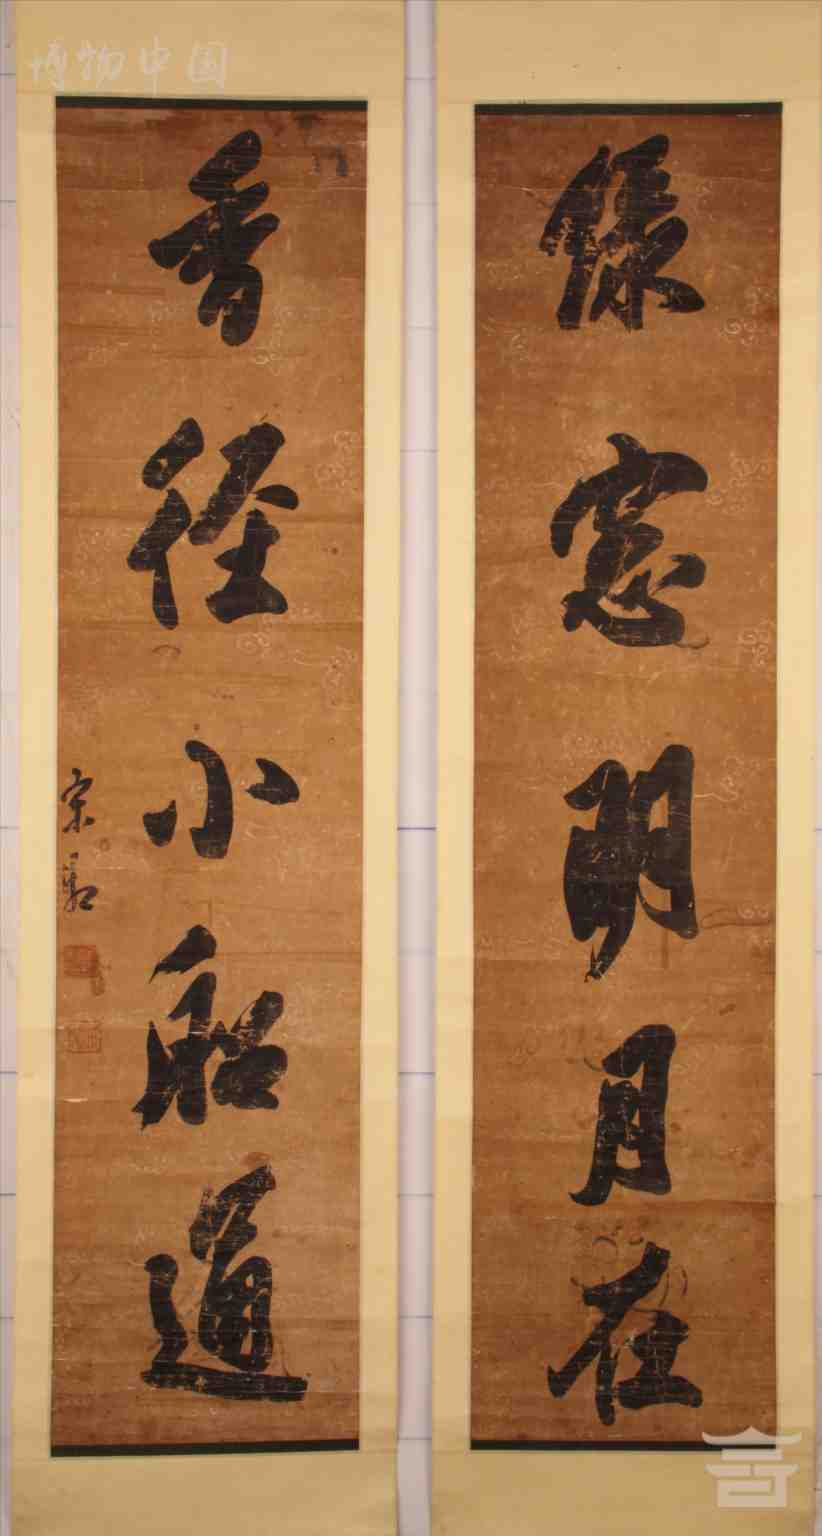 博物中国
綠窓明月在
香徑小船通
宋